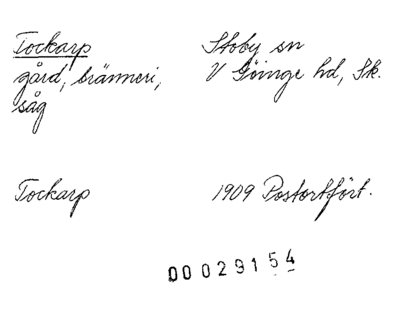 Tockarp Stoby sn
gård, bränneri, V Göinge hd, Sk.
såg
Tockarp 1909 Postortfört.
00029154